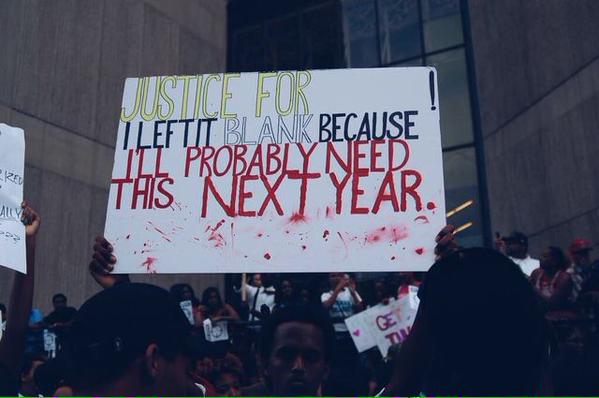 JUSTICE FOR !
I LEFT IT BLANK BECAUSE
I'LL PROBABLY NEED
THIS NEXT YEAR.
GET